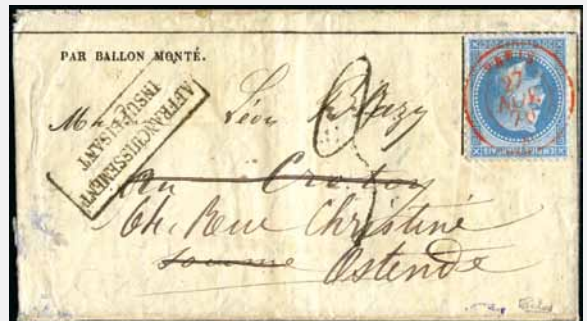 PAR BALLON MONTÉ.
AFFRANCHISSEMENT
INSUFFISANT
PARIS
27
NOV.
70
Mr Léon
Au Crotoy
Rue Christine
Somme Ostende